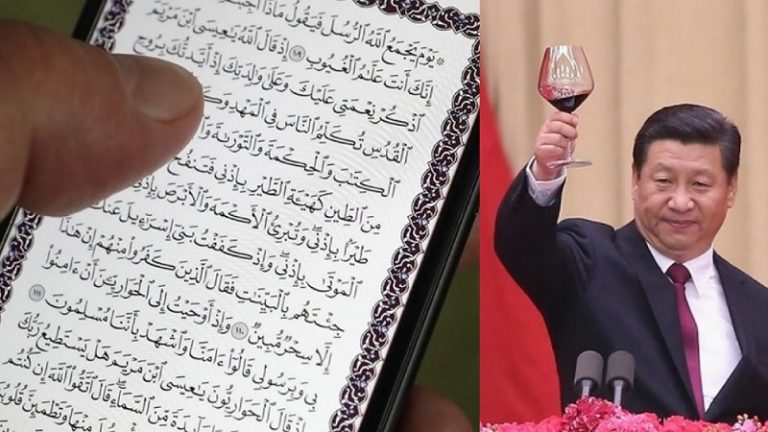 ۞ يَوْمَ يَجْمَعُ ٱللَّهُ ٱلرُّسُلَ فَيَقُولُ مَاذَآ
إِنَّكَ أَنتَ عَلَّٰمُ ٱلْغُيُوبِ ١٠٩ إِذْ قَالَ ٱللَّهُ يَٰعِيسَى ٱبْنَ مَرْيَمَ
ٱذْكُرْ نِعْمَتِى عَلَيْكَ وَعَلَىٰ وَٰلِدَتِكَ إِذْ أَيَّدتُّكَ بِرُوحِ
ٱلْقُدُسِ تُكَلِّمُ ٱلنَّاسَ فِى ٱلْمَهْدِ
ٱلْكِتَٰبَ وَٱلْحِكْمَةَ وَٱلتَّوْرَىٰةَ
مِنَ ٱلطِّينِ كَهَيْـَٔةِ ٱلطَّيْرِ بِإِذْنِى فَتَنفُخُ
طَيْرًۢا بِإِذْنِى وَتُبْرِئُ ٱلْأَكْمَهَ وَٱلْأَبْرَصَ بِإِذْنِى
ٱلْمَوْتَىٰ بِإِذْنِى وَإِذْ كَفَفْتُ بَنِىٓ إِسْرَٰٓءِيلَ عَنكَ
جِئْتَهُم بِٱلْبَيِّنَٰتِ فَقَالَ ٱلَّذِينَ كَفَرُوا۟ مِنْهُمْ إِنْ هَٰذَآ
إِلَّا سِحْرٌ مُّبِينٌ ١١٠ وَإِذْ أَوْحَيْتُ إِلَى ٱلْحَوَارِيِّـۧنَ أَنْ ءَامِنُوا۟
بِى وَبِرَسُولِى قَالُوٓا۟ ءَامَنَّا وَٱشْهَدْ بِأَنَّنَا مُسْلِمُونَ ١١١
إِذْ قَالَ ٱلْحَوَارِيُّونَ يَٰعِيسَى ٱبْنَ مَرْيَمَ هَلْ يَسْتَطِيعُ رَبُّكَ
مِّنَ ٱلسَّمَآءِ قَالَ ٱتَّقُوا۟ ٱللَّهَ إِن كُنتُم
مِنْهَا وَتَطْمَئِنَّ